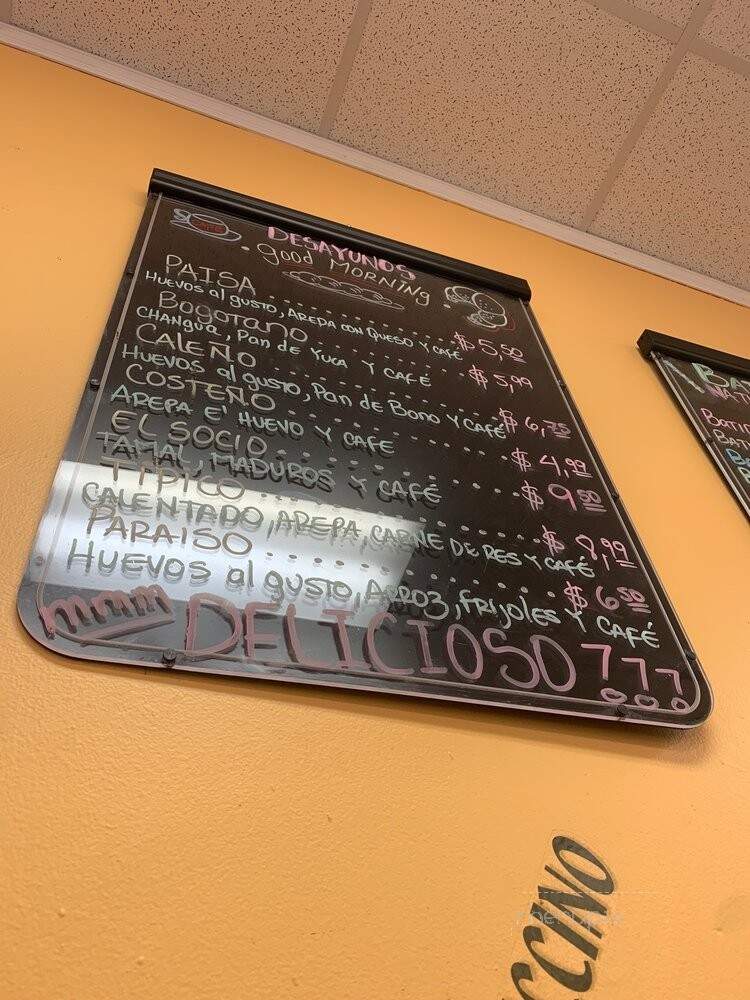 CAFÉ
DESAYUNOS
good MORNING
PAISA.................$5,50
HUEVOS al gusto, AREPA con Queso Y CAFÉ
Bogotano.................$5,99
CHANGUA, Pan de Yuca Y CAFÉ
CALEÑO.................$6,75
HUEVOS al gusto, Pan de Bono Y CAFÉ
COSTEÑO.................$4,99
AREPA E' HUEVO Y CAFÉ
EL SOCIO.................$9 50
TAMAL, MADUROS Y CAFÉ
TIPICO.................$8,99
CALENTADO, AREPA, CARNE DE RES Y CAFÉ
PARAISO.................$6 50
HUEVOS al gusto, ARROZ, FRIJOLES Y CAFÉ
mmmm DELICIOSO
BATI
CCINO